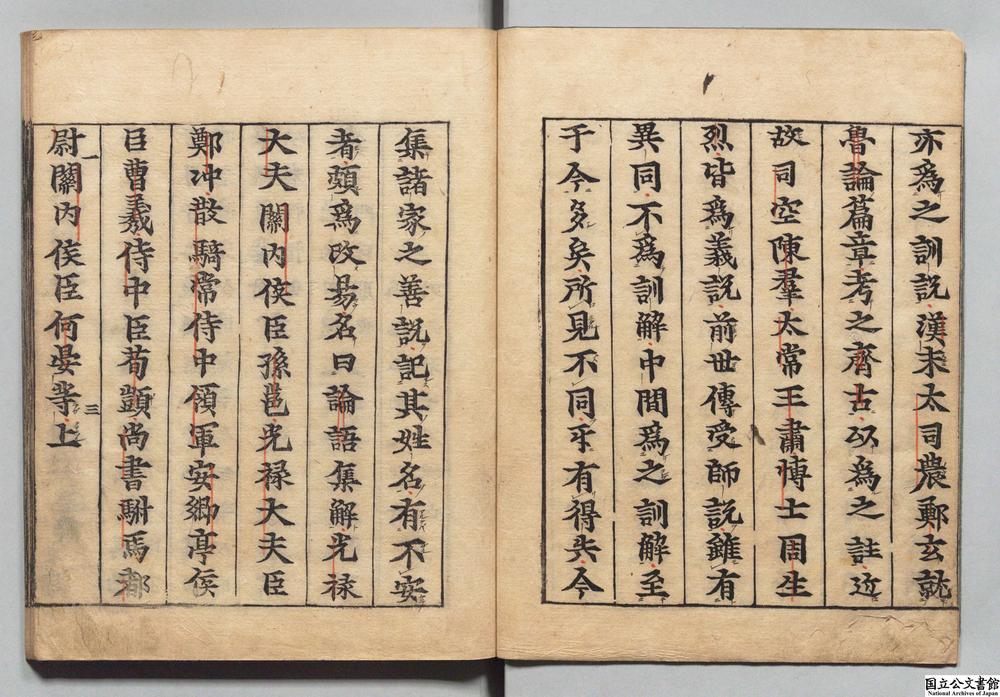 亦爲之訓説漢末太司農鄭玄就
魯論篇章考之齊古以爲之註近
故司空陳羣太常王肅博士周生
烈皆爲義説前世傳受師説雖有
異同不爲訓解中間爲之訓解至
于今多矣所見不同乎有得失今
集諸家之善説記其姓名有不安
者頗爲改易名曰論語集解光禄
大夫關内侯臣孫邕光禄大夫臣
鄭冲散騎常侍中領軍安鄉亭侯
臣曹羲侍中臣荀顗尚書駙馬都
尉關内侯臣何晏等上
国立公文書館
National Archives of Japan